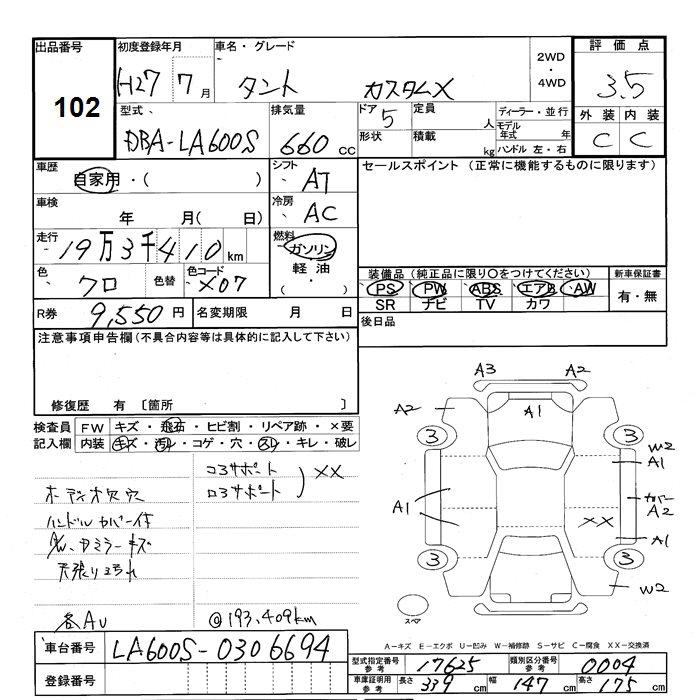 出品番号
102
初度登録年月
H27 7 月
車名・グレード
タント カスタムX
2WD
・
4WD
評価点
3.5
型式
DBA-LA600S
排気量
660 cc
ドア 5
形状
定員 人
積載 kg
ディーラー・並行
モデル年式 年
ハンドル 左・右
外装 内装
C C
車歴
自家用・( )
シフト
AT
セールスポイント (正常に機能するものに限ります)
車検
年 月( 日)
冷房
AC
走行
19万3千410km
燃料
ガソリン
軽油
( ・ )
色
クロ
色替
色コード
X07
装備品 (純正品に限り○をつけてください)
新車保証書
PS PW ABS エアB AW
SR ナビ TV カワ
有・無
R券 9,550円
名変期限 月 日
後日品
注意事項申告欄 (不具合内容等は具体的に記入して下さい)
修復歴 有 〔箇所 〕
検査員記入欄
FW キズ・飛石・ヒビ割・リペア跡・×要
内装 キズ・汚レ・コゲ・穴・スレ・キレ・破レ
コアサポート
ロアサポート
XX
ハンドルカバー付
天張り
@193,409km
A3 A2
A2 A1
3 3
W2
A1
A1
カバー
A2
XX
A1
3 3
W2
スペア
A-キズ E-エクボ U-凹み W-補修跡 S-サビ C-腐食 XX-交換済
車台番号 LA600S-0306694
登録番号
型式指定番号 参考 17625
類別区分番号 参考 0004
車庫証明用 参考 長さ 339 cm 幅 147 cm 高さ 175 cm